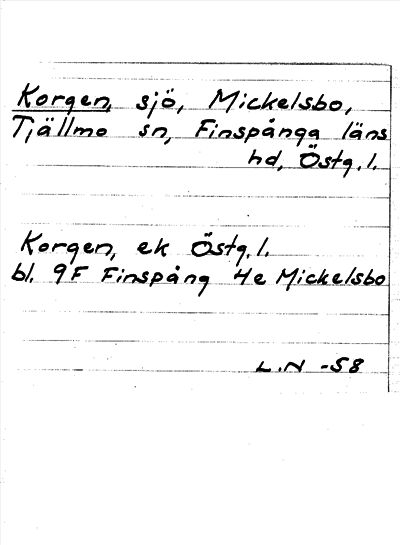 Korgen, sjö, Mickelsbo,
Tjällmo sn, Finspånga läns
hd, Östg.l.
Korgen, ek Östg.l.
bl. 9F Finspång 4e Mickelsbo
L.N -58